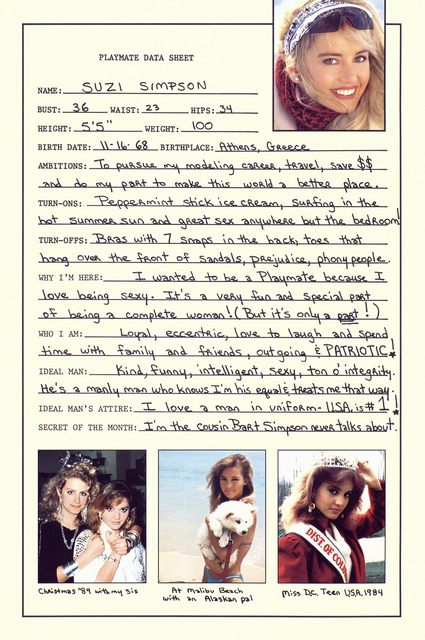 PLAYMATE DATA SHEET
NAME: SUZI SIMPSON
BUST: 36 WAIST: 23 HIPS: 34
HEIGHT: 5'5" WEIGHT: 100
BIRTH DATE: 11-16-68 BIRTHPLACE: Athens, Greece
AMBITIONS: To pursue my modeling career, travel, save $$
and do my part to make this world a better place.
TURN-ONS: Peppermint stick ice cream, surfing in the
hot summer sun and great sex anywhere but the bedroom!
TURN-OFFS: Bras with 7 snaps in the back, toes that
hang over the front of sandals, prejudice, phony people.
WHY I'M HERE: I wanted to be a Playmate because I
love being sexy. It's a very fun and special part
of being a complete woman! (But it's only a part!)
WHO I AM: Loyal, eccentric, love to laugh and spend
time with family and friends, outgoing & PATRIOTIC!
IDEAL MAN: Kind, funny, intelligent, sexy, ton o' integrity.
He's a manly man who knows I'm his equal & treats me that way.
IDEAL MAN'S ATTIRE: I love a man in uniform- USA is #1!
SECRET OF THE MONTH: I'm the cousin Bart Simpson never talks about.
DIST OF COL
Christmas '89 with my sis
At Malibu Beach
with an Alaskan pal
Miss D.C. Teen USA 1984